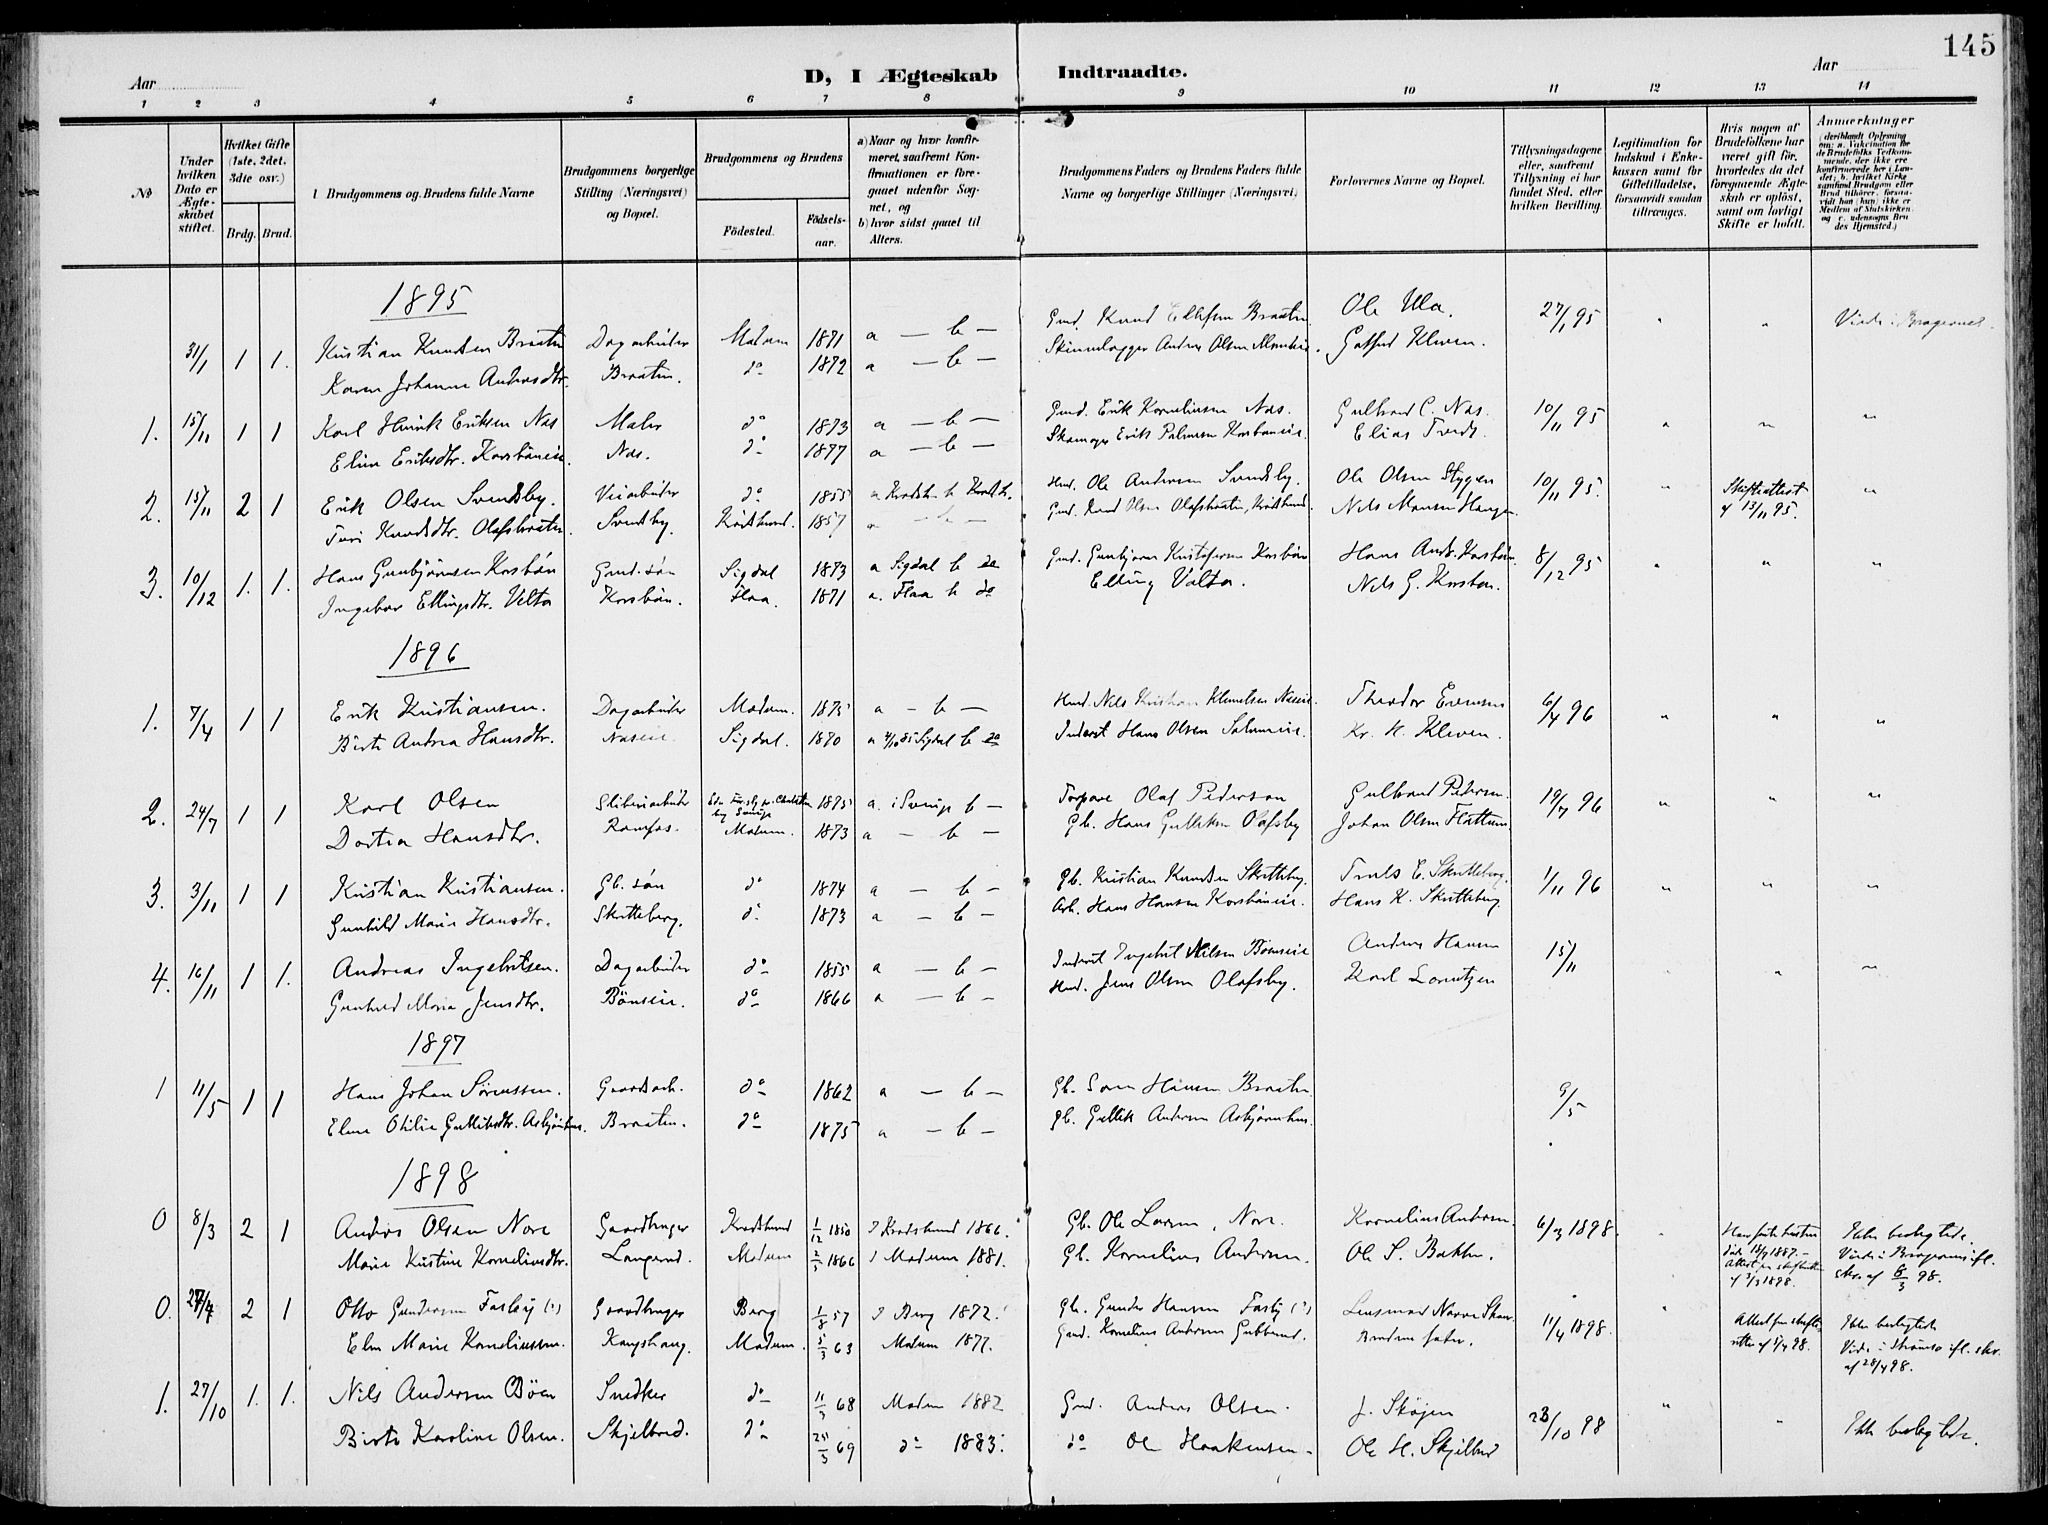 145
Aar
D, I Ægteskab Indtraadte.
Aar
1 2 3 4 5 6 7 8 9 10 11 12 13 14
No
Under hvilken Dato er Ægteskabet stiftet.
Hvilket Gifte (1ste, 2det, 3die osv.)
Brdg. Brud.
Brudgommens og Brudens fulde Navne
Brudgommens borgerlige Stilling (Næringsvei) og Bopæl.
Brudgommens og Brudens
Fødested. Fødselsaar.
a) Naar og hvor konfirmeret, saafremt Konfirmationen er foregaaet udenfor Sognet, og
b) hvor sidst gaaet til Alters.
Brudgommens Faders og Brudens Faders fulde Navne og borgerlige Stillinger (Næringsvei)
Forlovernes Navne og Bopæl.
Tillysningsdagene eller, saafremt Tillysning ei har fundet Sted, efter hvilken Bevilling.
Legitimation for Indskud i Enkekassen samt for Giftetilladelse, forsaavidt saadan tiltrænges.
Hvis nogen af Brudefolkene har været gift før, hvorledes da det foregaaende Ægteskab er opløst, samt om lovligt Skifte er holdt.
Anmærkninger
1895
31/1 1 1. Kristian Knudsen Braaten Dagarbeider Modum 1871 a — b — Gmd. Knud Ellefsen Braaten Ole Ula. 27/1 95 " " Viede i Bragernes.
Karen Johanne Andersdtr. Braaten. do 1872 a — b — Anders Olsen Kleven.
1. 15/11 1 1 Karl Henrik Eriksen Næs Maler do 1873 a — b — Gmd. Erik Korneliussen Næs. Gulbrand C. Næs. 10/11 95 " " "
Eline Eriksdtr. Korsbøneie. Næs. do 1877 a — b — Skomager Erik Korsbøneie. Elias Tveds.
2. 15/11 2 1 Erik Olsen Svendsby. Veiarbeider do 1855 a Krødsh. b Krødsh. Hmd. Ole Andersen Svendsby. Ole Olsen Stygen 10/11 95. " Skifteattest "
Turi Knudsdtr. Olafsbraaten Svendsby. Krødsherred. 1857 a — b — Gmd. Knud Olsen Olafsbraaten, Krødsherred. Nils Monsen Haugen af 13/11 95.
3. 10/12 1. 1. Hans Gunbjørnsen Korsbøn Gmd. søn Sigdal 1873 a Sigdal b do Gmd. Gunbjørn Kristofersen Korsbøn Hans Andr. Korsbøn 8/12 95 " " "
Ingebor Ellingsdtr. Velta Korsbøn. Flaa. 1871 a. Flaa b do Elling Velta. Nils G. Korsbøn.
1896
1. 7/4 1 1 Erik Kristiansen. Dagarbeider Modum. 1875 a — b — Hmd. Nils Kristian Klemetsen Næseie. Theodor Evensen 6/4 96 " " "
Birte Andrea Hansdtr. Næseie. Sigdal. 1870 a 4/10 85 Sigdal b do Inderst Hans Olsen Kr. K. Kleven.
2. 24/7 1 1 Karl Olsen Sliberiarbeider 1875 a. i Sverige b — Torpare Olaf Pederson Gulbrand Petersen 19/7 96 " " "
Dortea Hansdtr. Ramfos. Modum. 1873 a — b — Gb. Hans Gulliksen Olafsby Johan Olsen Flattum.
3. 3/11 1 1 Kristian Kristiansen. Gb. søn do 1874 a — b — Gb. Kristian Knudsen Skutteberg. Truls E. Skutteberg. 1/11 96 " " "
Gunhild Marie Hansdtr. Skutteberg. do 1873 a — b — Arb. Hans Hansen Korsbøneie. Hans K. Skutteberg
4. 16/11 1 1. Andreas Ingebretsen. Dagarbeider do 1855 a — b — Inderst Ingebret Nilsen Bønseie Anders Hansen 15/11 " " "
Gunhild Maria Jensdtr. Bønseie. do 1866 a — b — Hmd. Jens Olsen Olafsby. Karl Lorentzen
1897
1 11/5 1 1 Hans Johan Sørenssen. Gaardarb. do 1862 a — b — Gb. Søren Hansen Braaten 9/5
Elise Otilie Gulliksdtr. Asbjørnhus. Braaten. do 1875 a — b — Gb. Gullik Andersen Asbjørnhus.
1898
0 8/3 2 1 Anders Olsen Nore Gaardbruger Krødsherred 1/12 1850 I Krødsherred 1866. Gb. Ole Larsen, Nore. Kornelius Andersen. 6/3 1898. " Hans første hustru Ikke beslægtede.
Marie Kristine Korneliusdtr. Langerud. Modum 2/3 1866 I Modum 1881. Gb. Kornelius Andersen. Ole S. Bakken. døde 13/9 1887.— Attest fra skifteretten af 7/3 1898. Viede i Bragernes ifl. skr. af 8/3 98.
0. 27/4 2 1 Otto Gundersen Fosby (?) Gaardbruger Berg 1/8 57 I Berg 1872. Gb. Gunder Hansen Fosby (?) Lensmand Narve Skar 11/4 1898. " Attest fra skifteretten af 5/4 98. Ikke beslægtede
Elen Marie Korneliussen. Kongshaug. Modum. 5/3 63 Modum 1877. Gmd. Kornelius Andersen Gubberud. Brudens fader. Viede i Strømsø ifl. skr. af 28/4 98.
1. 27/10 1. 1. Nils Andersen Bøen Snedker do 11/3 68 Modum 1882 Gmd. Anders Olsen. J. Skøien 23/10 98 " "
Birte Karoline Olsen. Skjelbred. do 25/3 69 do 1883. do Ole Haakensen. Ole H. Skjelbred Ikke beslægtede.